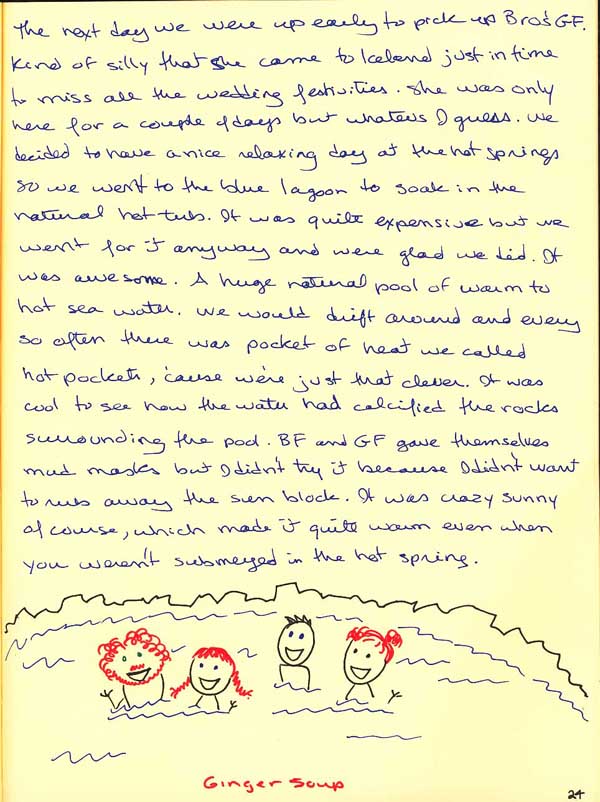 The next day we were up early to pick up Bro's GF.
Kind of silly that she came to Iceland just in time
to miss all the wedding festivities. She was only
here for a couple of days but whatevs I guess. We
decided to have a nice relaxing day at the hot springs
so we went to the blue lagoon to soak in the
natural hot tubs. It was quite expensive but we
went for it anyway and were glad we did. It
was awesome. A huge natural pool of warm to
hot sea water. We would drift around and every
so often there was pocket of heat we called
hot pockets, 'cause we're just that clever. It was
cool to see how the water had calcified the rocks
surrounding the pool. BF and GF gave themselves
mud masks but I didn't try it because I didn't want
to rub away the sun block. It was crazy sunny
of course, which made it quite warm even when
you weren't submerged in the hot spring.
Ginger Soup
24